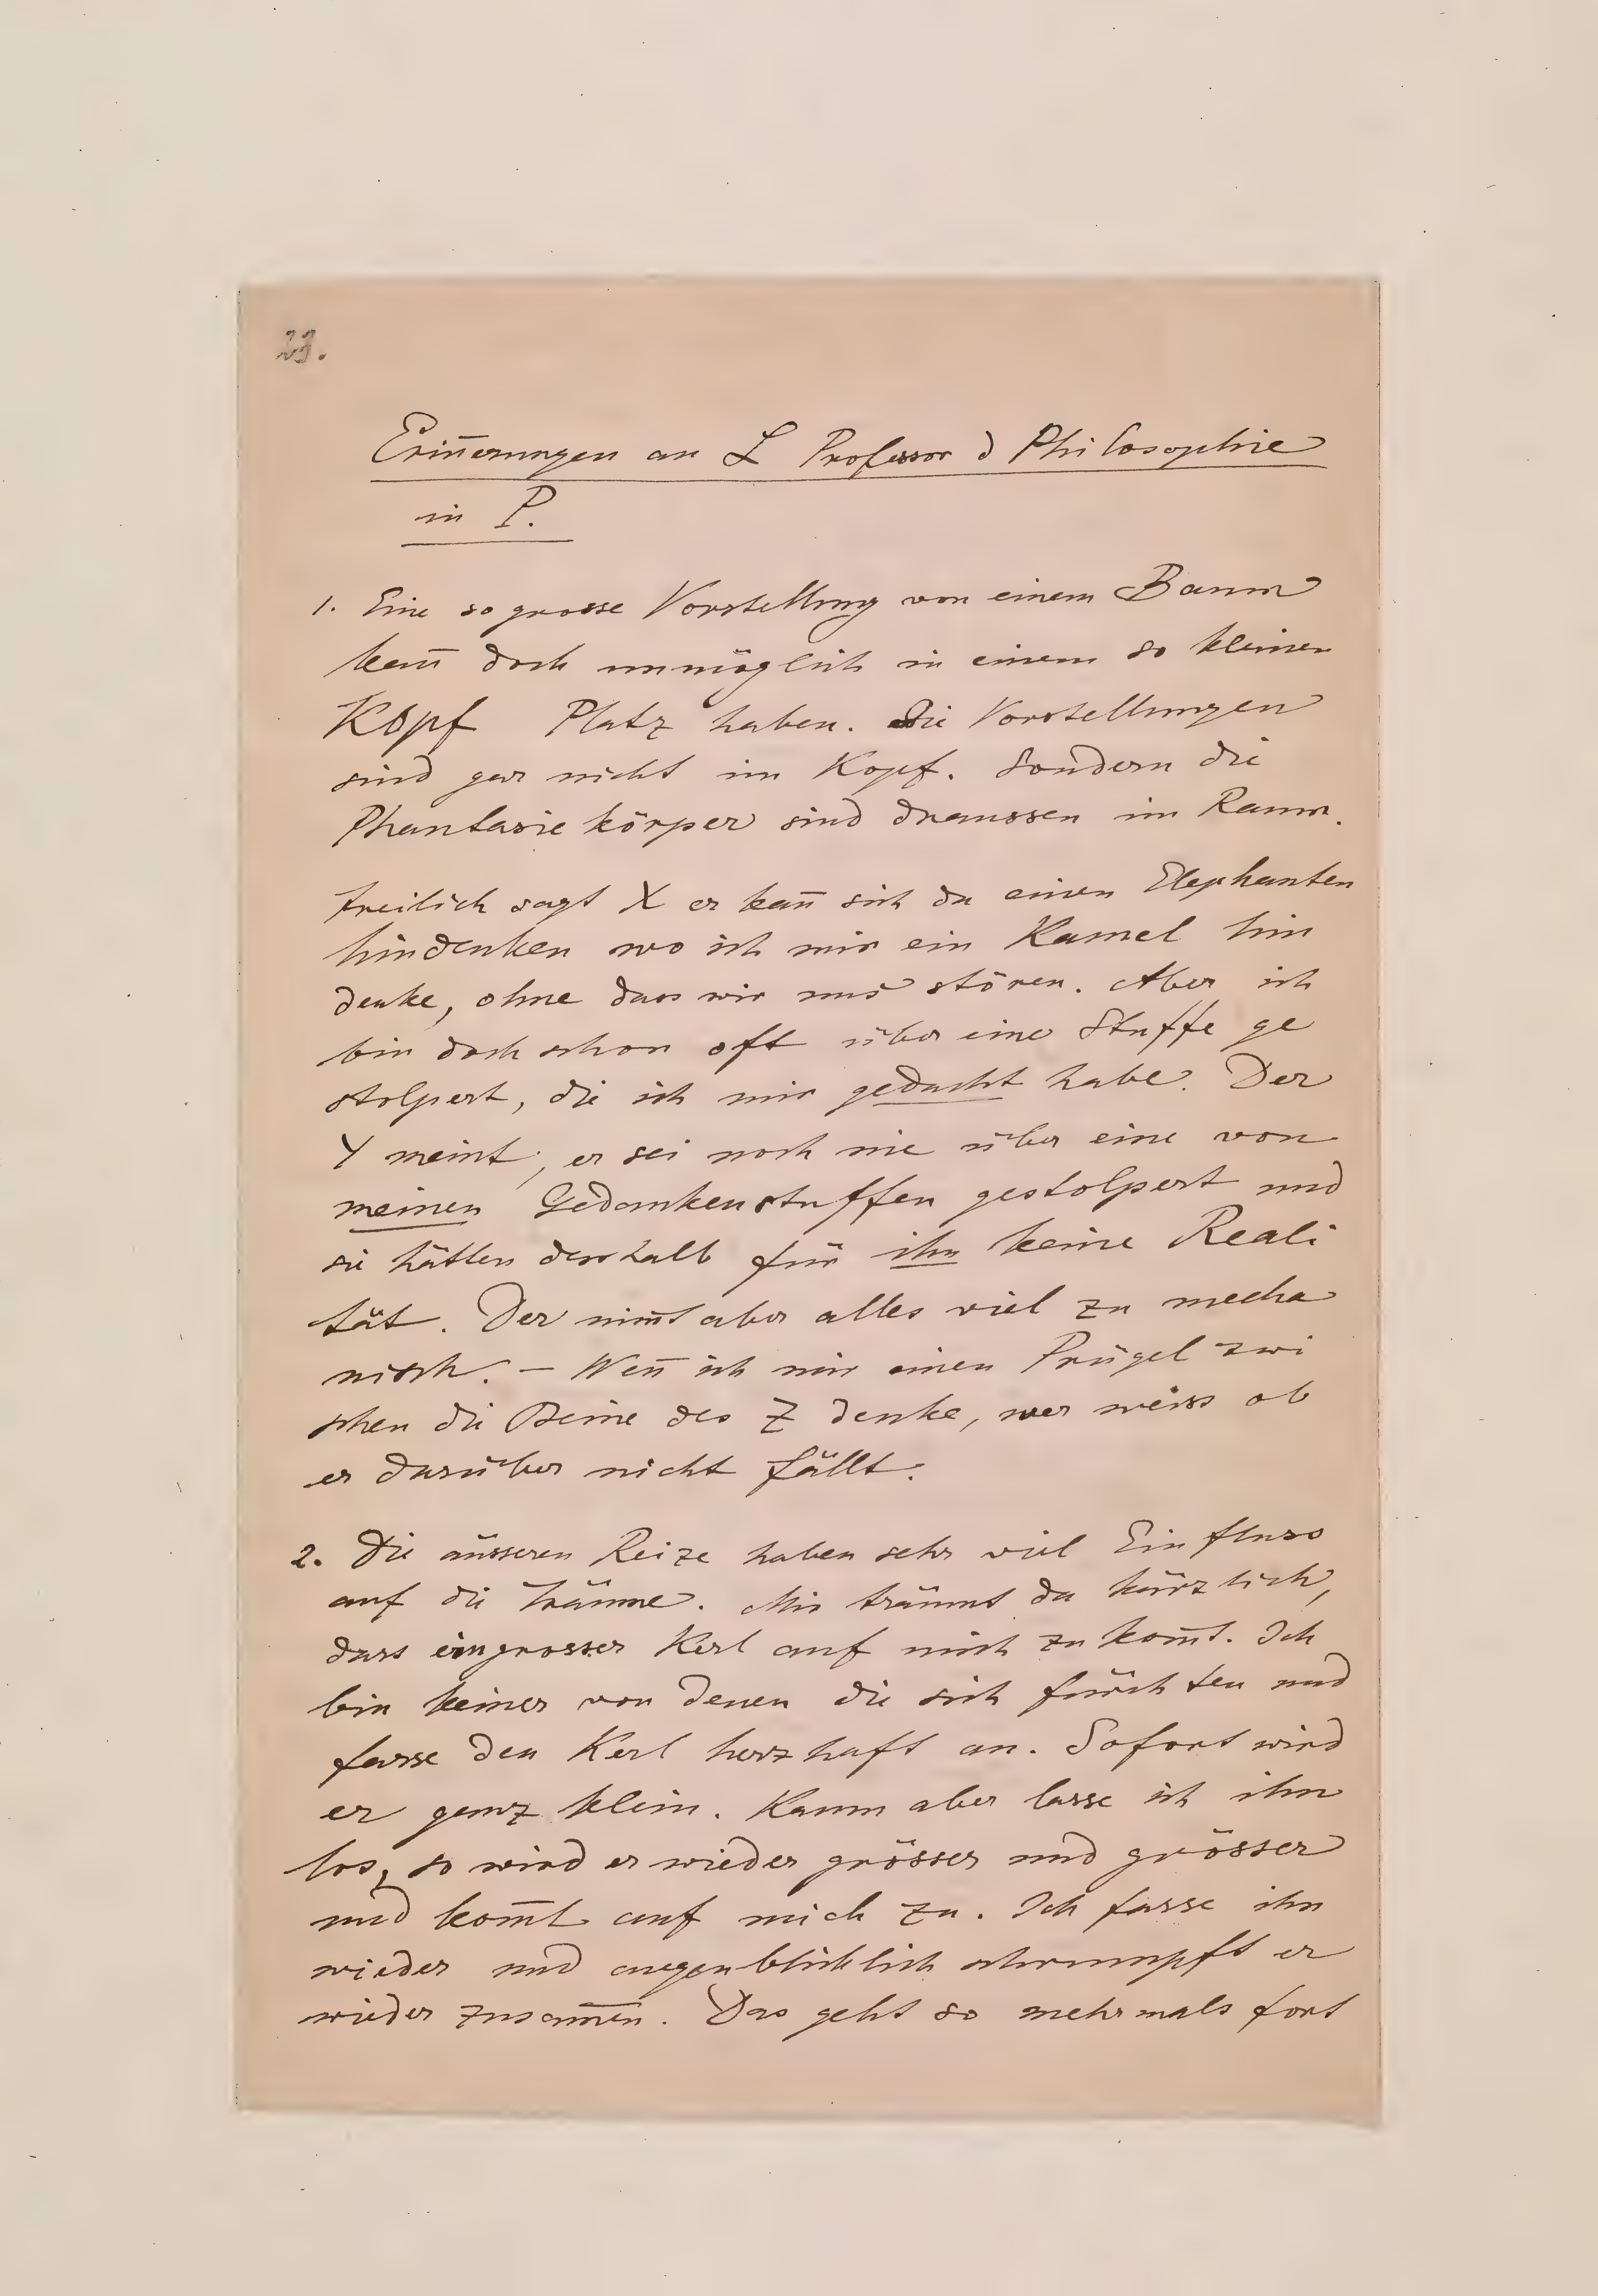 23.
Erin̄erungen an L Professor d Philosophie
in P.
1. Eine so grosse Vorstellung von einem Baum
kan̄ doch unmöglich in einem so kleinen
Kopf Platz haben. Die Vorstellungen
sind gar nicht im Kopf. Sondern die
Phantasiekörper sind draussen im Raum.
Freilich sagt X er kan̄ sich da einen Elephanten
hindenken wo ich mir ein Kamel hin
denke, ohne dass wir uns stören. Aber ich
bin doch schon oft über eine Stuffe ge
stolpert, die ich mir gedacht habe. Der
Y meint, er sei noch nie über eine von
meinen Gedankenstuffen gestolpert und
sie hätten desshalb für ihn keine Reali
tät. Der nim̄t aber alles viel zu mecha
nisch. – Wen̄ ich mir einen Prügel zwi
schen die Beine des Z denke, wer weiss ob
er darüber nicht fällt.
2. Die äusseren Reize haben sehr viel Einfluss
auf die Träume. Mir träumt da kürzlich,
dass ein grosser Kerl auf mich zu kom̄t. Ich
bin keiner von denen die sich fürchten und
fasse den Kerl herzhaft an. Sofort wird
er ganz klein. Kaum aber lasse ich ihn
los, so wird er wieder grösser und grösser
und kom̄t auf mich zu. Ich fasse ihn
wieder und augenblicklich schrumpft er
wieder zusam̄en. Das geht so mehrmals fort